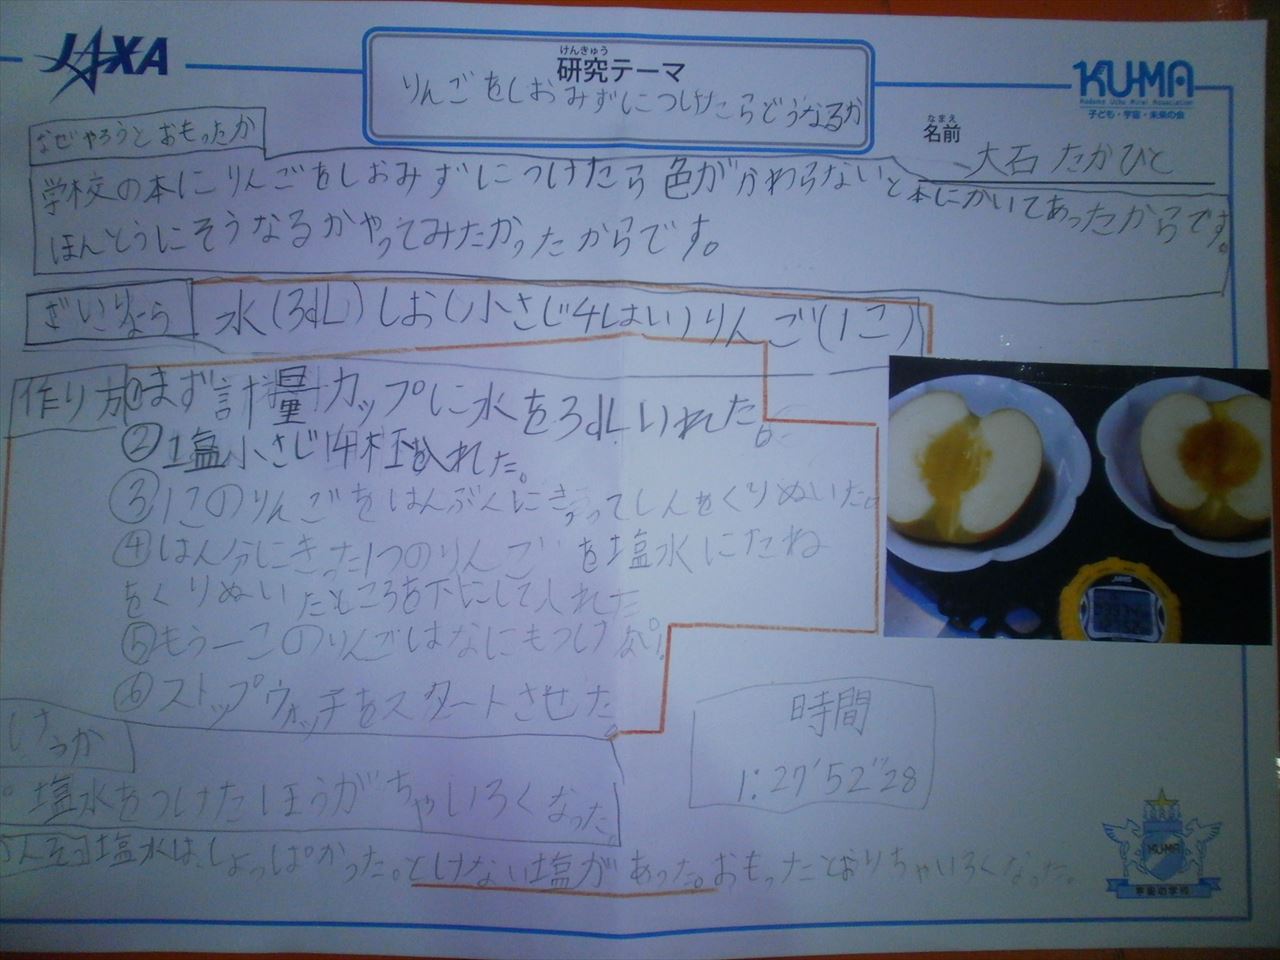 JAXA
けんきゅう
研究テーマ
りんごをしおみずにつけたらどうなるか
KU-MA
Kodomo Uchu Mirai Association
子ども・宇宙・未来の会
なまえ
名前
大石 たかひと
なぜやろうとおもったか
学校の本にりんごをしおみずにつけたら色がかわらないと本にかいてあったからです。
ほんとうにそうなるかやってみたかったからです。
ざいりょう
水(3dL)しお(小さじ4はい)りんご(1こ)
作り方
①まず計量カップに水を3dLいれた。
②塩小さじ4杯を入れた。
③1このりんごをはんぶんにきってしんをくりぬいた。
④はん分にきった1つのりんごを塩水にたね
をくりぬいたところを下にして入れた
⑤もう一このりんごはなにもつけない。
⑥ストップウォッチをスタートさせた。
けっか
塩水をつけたほうがちゃいろくなった。
時間
1:27'52"28
塩水は、しょっぱかった。とけない塩があった。おもったとおりちゃいろくなった。
KU-MA
宇宙の学校